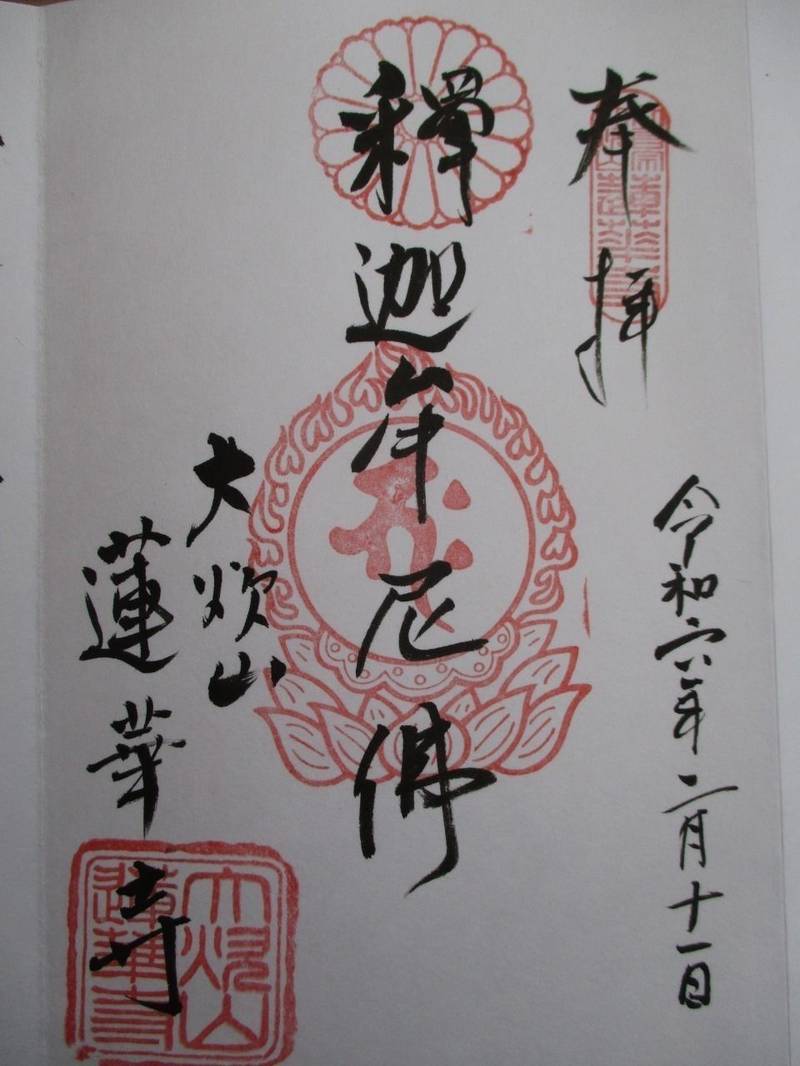 奉拝
令和六年二月十一日
釋迦牟尼佛
大炊山
蓮華寺